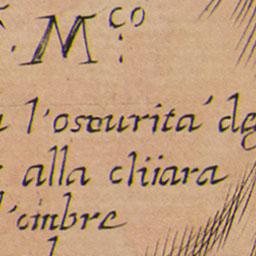 M.co
l'oscurita' de
alla chiara
l'ombre